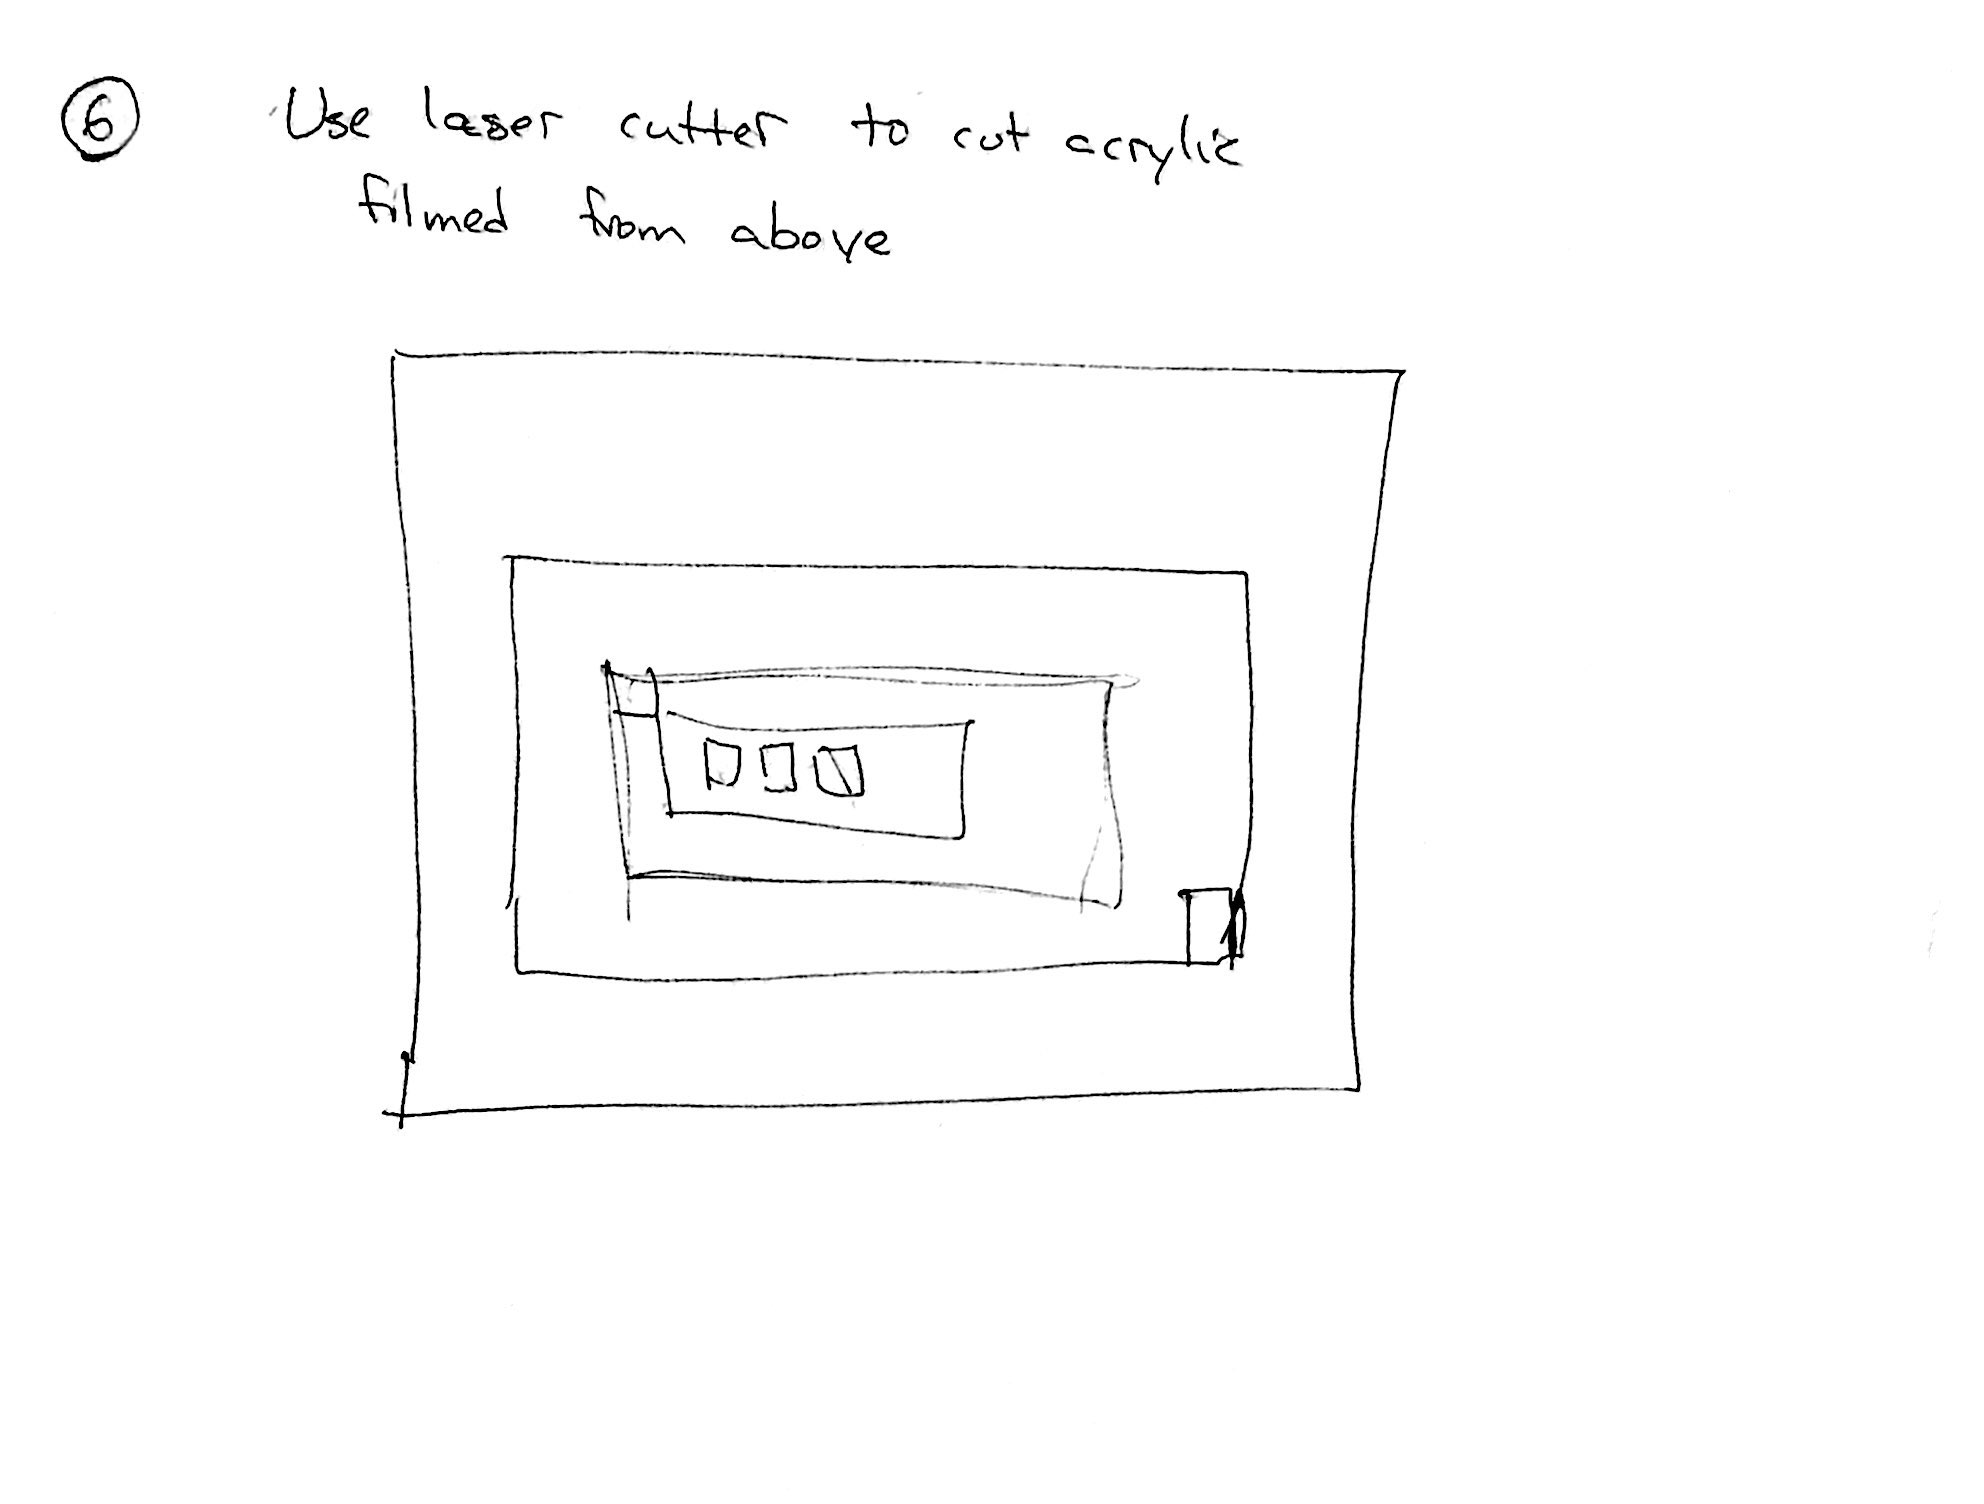 6 Use laser cutter to cut acrylic
filmed from above